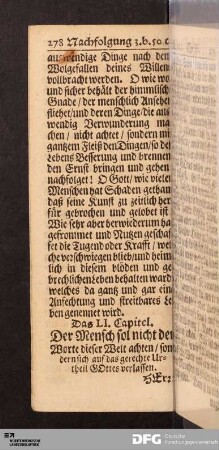 278 Nachfolgung 3. b. 50 c
auswendige Dinge nach dem
Wolgefallen deines Willen
vollbracht werden. O wie wo
und sicher behält der himmlisch
Gnade / der menschlich Ansehen
fliehet / und deren Dinge / die aus
wendig Verwunderung ma
chen / nicht achtet / sondern mi
gantzem Fleiß den Dingen / so des
Lebens Besserung und brennen
den Ernst bringen und geben
nachfolget! O Gott / wie vielen
Menschen hat Schaden gethan
daß seine Kunst zu zeitlich her
für gebrochen und gelobet ist
Wie sehr aber herwiederum ha
gefrommet und Nutzen geschaf
fet die Tugend oder Krafft / wel
che verschwiegen blieb / und heim
lich in diesem blöden und ge
brechlichen Leben behalten ward
welches da gantz und gar ein
Anfechtung und streitbares Le
ben genennet wird.
Das LI. Capitel.
Der Mensch sol nicht der
Worte dieser Welt achten / son
dern sich auf das gerechte Ur
theil GOttes verlassen.
DFG Deutsche
Forschungsgemeinschaft